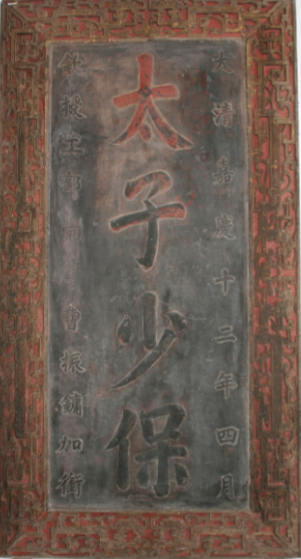 大清嘉慶十二年四月
太子少保
欽授工部
曹振鏞加銜